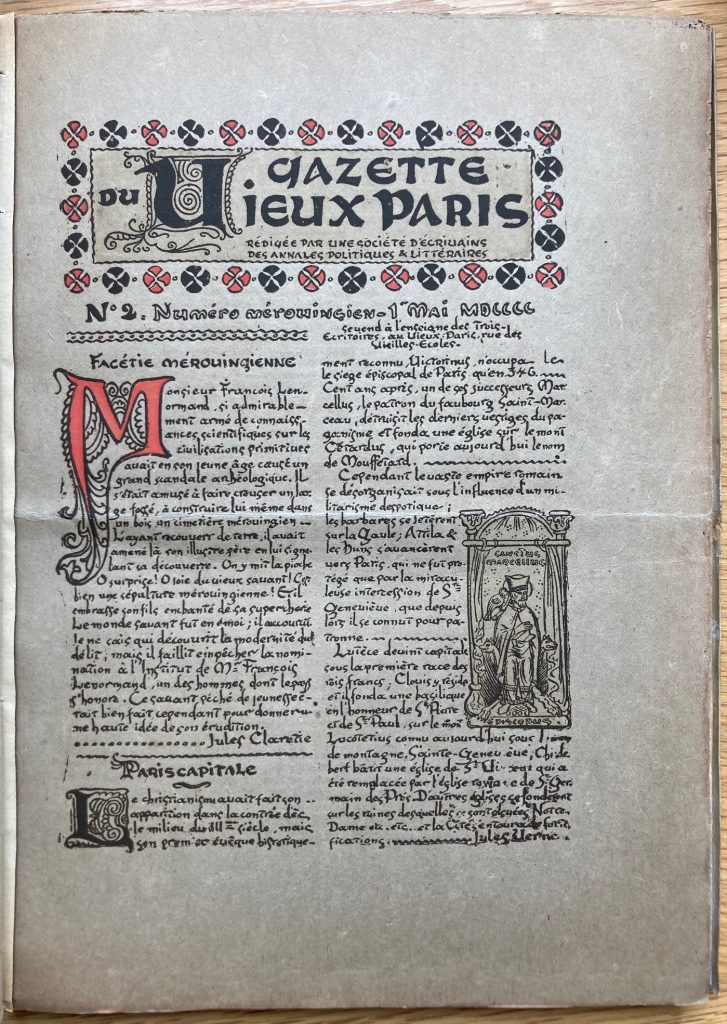 GAZETTE
DU VIEUX PARIS
RÉDIGÉE PAR UNE SOCIÉTÉ D'ÉCRIVAINS
DES ANNALES POLITIQUES & LITTÉRAIRES
N° 2. Numéro mérovingien - 1er Mai MDCCCC
se vend à l'enseigne des Trois-
Ecritoires, au Vieux-Paris, rue des
Vieilles-Ecoles.
FACÉTIE MÉROVINGIENNE
Monsieur François Len-
ormand, si admirable-
ment armé de connaiss-
ances scientifiques sur les
civilisations primitives
avait en son jeune âge causé un
grand scandale archéologique. Il
s'était amusé à faire creuser un lar-
ge fossé, à construire lui même dans
un bois un cimetière mérovingien.
L'ayant recouvert de terre, il avait
amené là son illustre père en lui signa-
lant sa découverte. On y mit la pioche
O surprise! O joie du vieux savant! C'est
bien une sépulture mérovingienne! Et il
embrasse son fils enchanté de sa supercherie
Le monde savant fut en émoi; il accourut
je ne sais qui découvrit la modernité du
délit, mais il faillit empêcher la nomi-
nation à l'Institut de Mr. François
Lenormand, un des hommes dont le pays
s'honore. Ce savant péché de jeunesse é-
tait bien fait cependant pour donner u-
ne haute idée de son érudition.
Jules Claretie
PARIS CAPITALE
Le christianisme avait fait son
apparition dans la contrée dès
le milieu du IIIme siècle, mais
son premier évêque historique-
ment reconnu, Victorinus, n'occupa le
le siège épiscopal de Paris qu'en 346.
Cent ans après, un de ses successeurs Mar-
cellus, le patron du faubourg Saint-Mar-
ceau, détruisit les derniers vestiges du pa-
ganisme et fonda une église sur le mont
Cétardus, qui porte aujourd'hui le nom
de Mouffetard.
Cependant le vaste empire romain
se désorganisait sous l'influence d'un mi-
litarisme despotique;
les barbares se jetèrent
sur la Gaule; Attila &
les Huns s'avancèrent
vers Paris, qui ne fut pro-
tégé que par la miracu-
leuse intercession de Ste
Geneviève, que depuis
lors il se connut pour pa-
tronne.
SANCTUS
MARCELLUS
EPISCOPUS
Lutèce devint capitale
sous la première race des
rois francs; Clovis y réside
et il fonda une basilique
en l'honneur de St Pierre
et de St Paul, sur le mont
Lucotetius connu aujourd'hui sous
de montagne Sainte-Geneviève, Childe-
bert bâtit une église de St qui a
été remplacée par l'église de St Ger-
main des Prés. D'autres églises se fondèrent
sur les ruines desquelles se sont élevées Notre-
Dame etc. etc... et la Cité s'entoura de forti-
fications. Jules Verne.